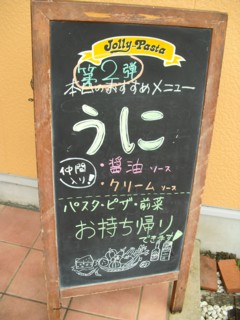 Jolly-Pasta
第2弾
本日のおすすめメニュー
うに
仲間入り!
・醤油ソース
・クリームソース
パスタ・ピザ・前菜
お持ち帰り
できます♪